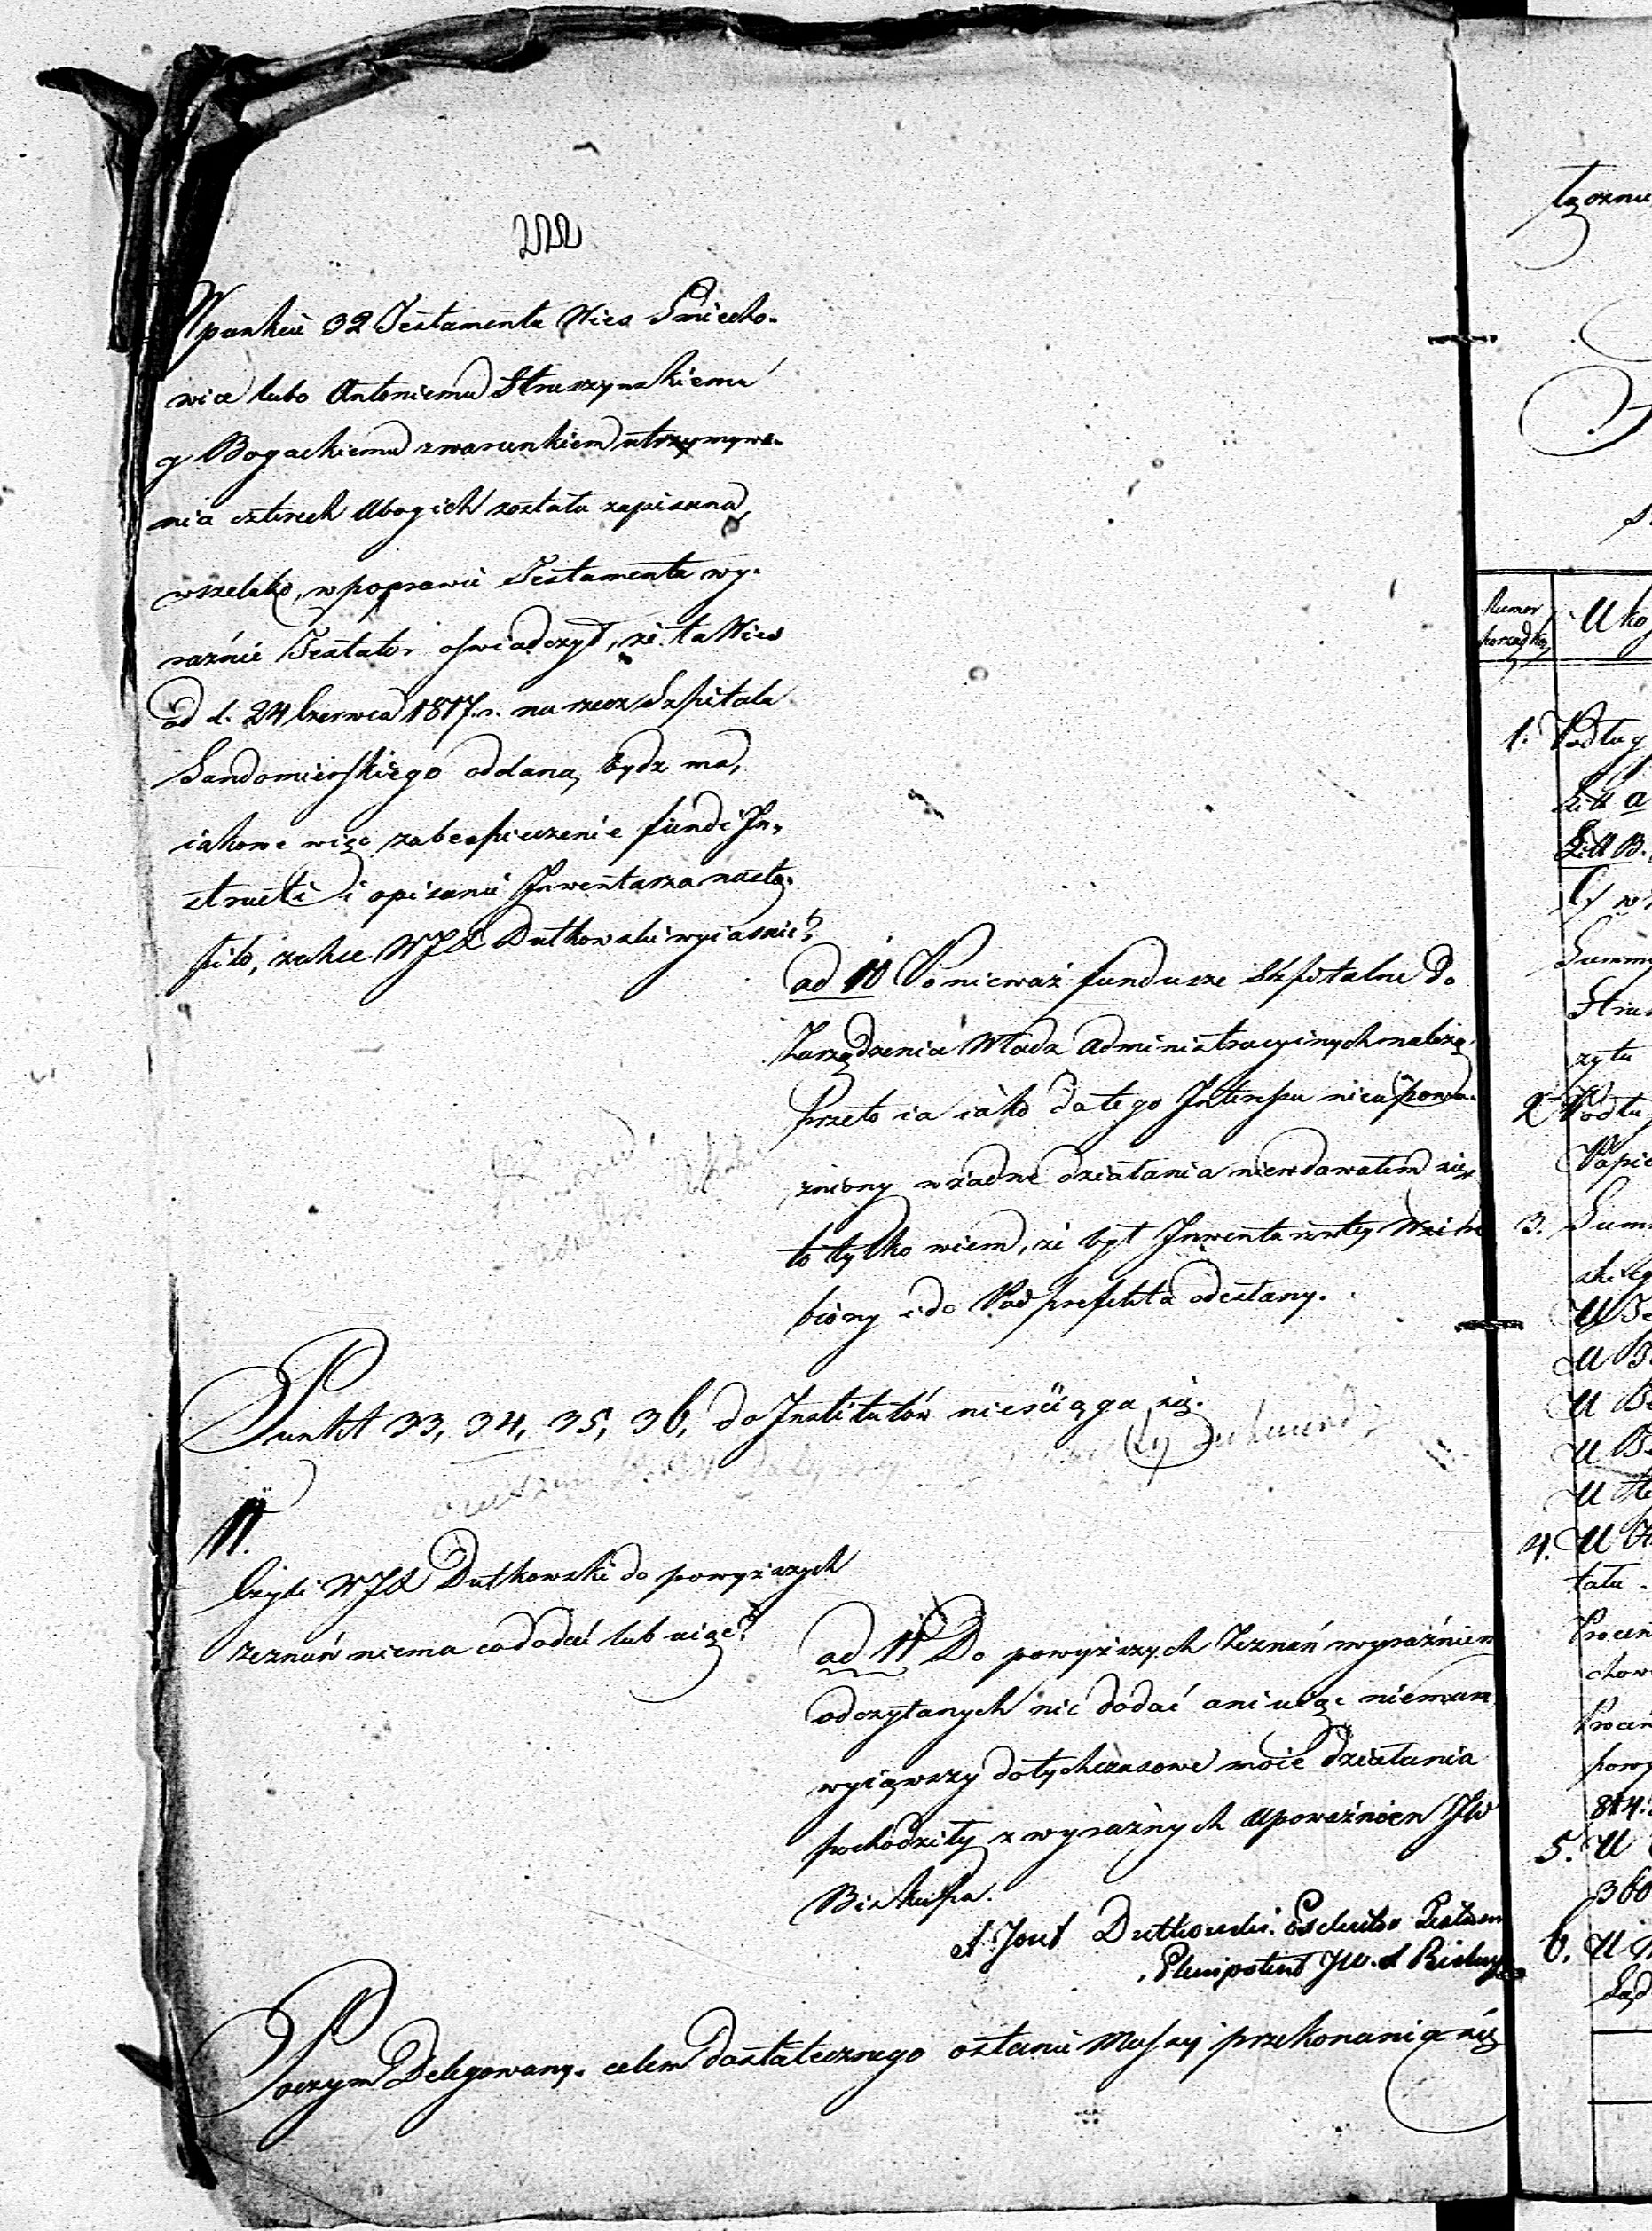 W punkcie 32 Testamentu Wieś Śmiecho-
wice lubo Antoniemu Straszynskiemu
y Bogackiemu z warunkiem utrzymywa-
nia czterech Ubogich została zapisaną,
wszelako, w poprawie Testamentu wy-
raźnie Testator oświadczył, że ta Wieś
od d. 24 Czerwca 1817. r. na rzecz Szpitala
Sandomierskiego oddaną bydz ma,
iakowe więc zabespieczenie fundi In-
structi i opisanie Inwentarza nastą-
piło, zechce WJX Dutkowski wyiasnić?
ad 10 Ponieważ fundusze Szpitalne do
Zarządzenia Władz Administracyinych należą
Przeto ia iako do tego Interessu nieupowa-
żniony w żadne działania niewdawałem się
to tylko wiem, że był Inwentarz tey Wsi
biony i do Podprefekta odesłany.
Punkt 33, 34, 35, 36, do Institutów nieściąga się.
11.
Czyli WJX Dutkowski do powyższych
zeznań niema co dodać lub uiąć?
ad 11 Do powyższych Zeznań wyraźnie
odczytanych nic dodać ani uiąć niemam
wyiąwszy dotychczasowe moie działania
pochodziły z wyraźnych Upoważnien JW
Biskupa.
Dutkowski Exekutor Testam
Plenipotent JW.
Poczym Delegowany celem dostatecznego o stanie Massy przekonania się
Numer
porządku
1. Podług
Litt a
Litt B.
Summy
2 Podług
3. Summ
4. U
tału
Procen
chow
Procen
powy
814.
5. U
360
6. U